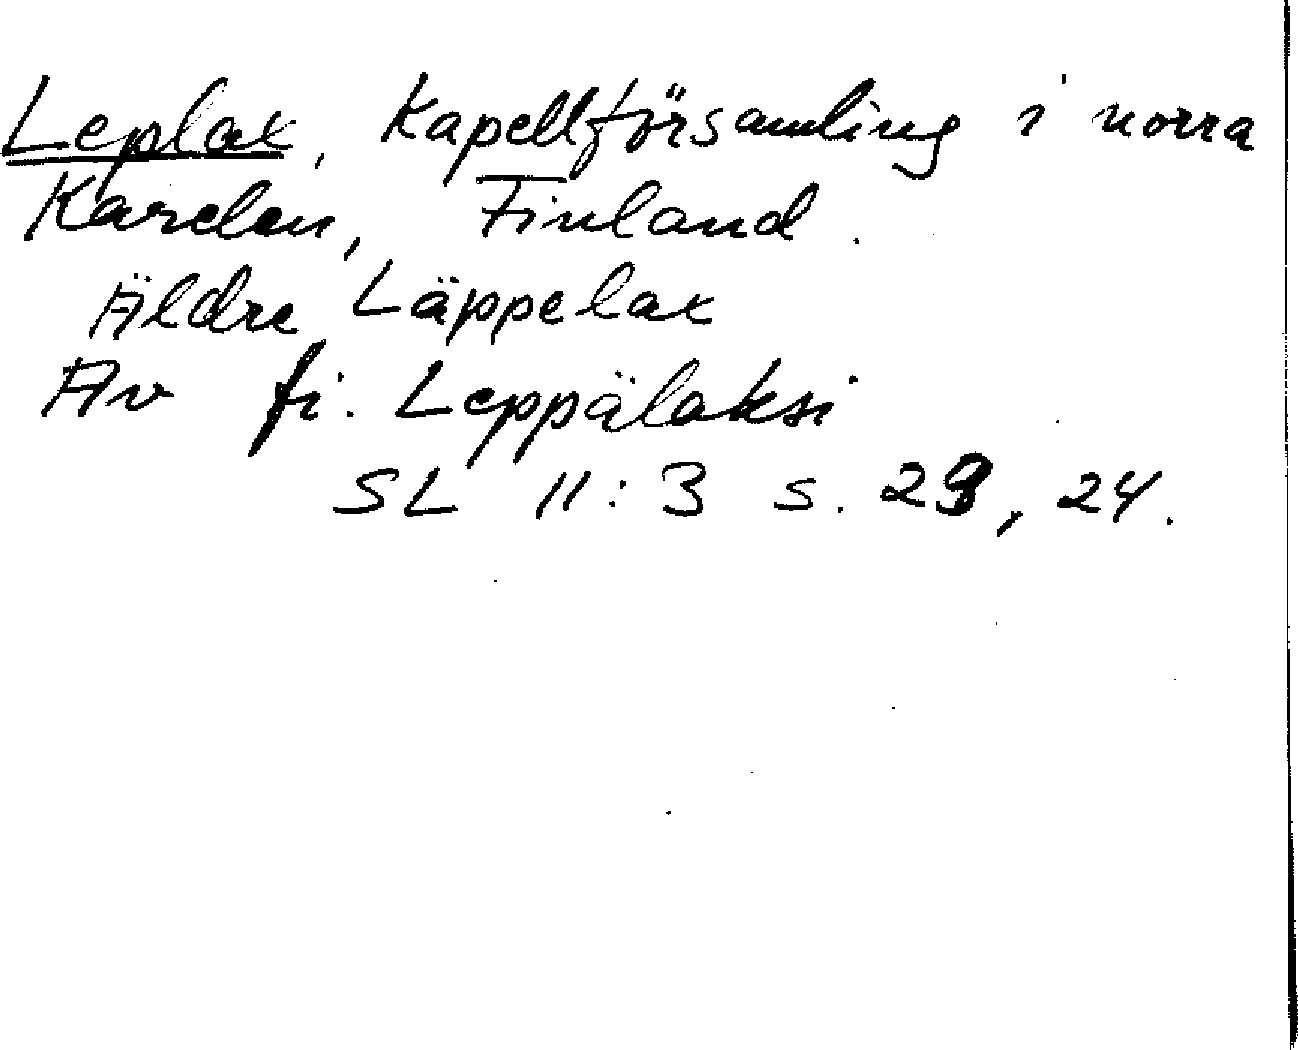 Leplax, Kapellförsamling i norra
Karelen, Finland.
Äldre Läppelax
Av fi. Leppälaksi
SL 11:3 s. 23, 24.